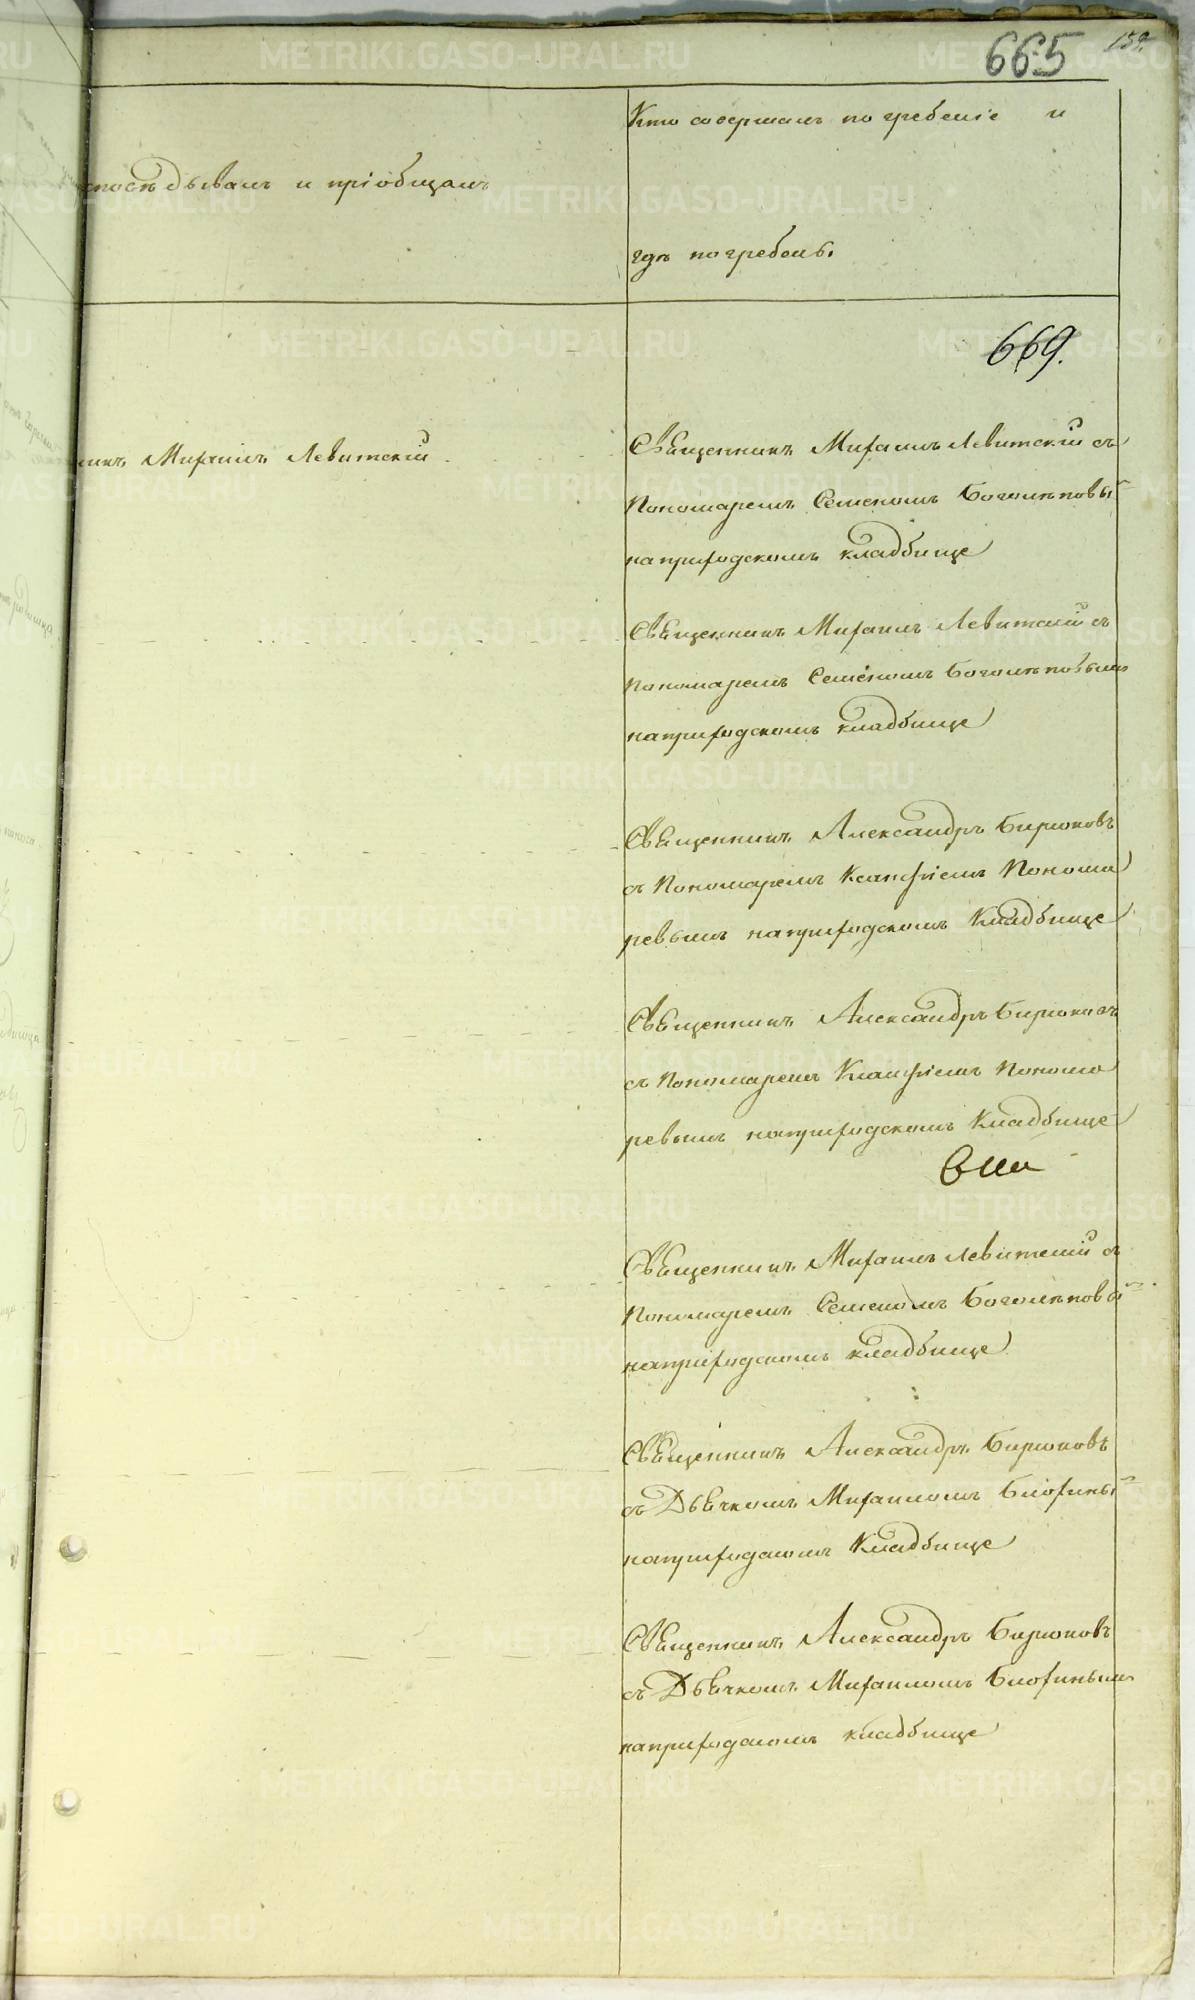 665
159
Кто совершалъ погребеніе и
споведывалъ и пріобщалъ
где погребенъ.
669.
Священникъ Михаилъ Левитскій съ
никъ Михаилъ Левитскій
Пономаремъ Семеномъ Боголеповы
на приходскомъ кладбище
Священникъ Михаилъ Левитскій съ
пономаремъ Семеномъ Боголеповымъ
на приходскомъ кладбище
Священникъ Александръ Бирюковъ
съ Пономаремъ Понома
ревымъ на приходскомъ Кладбище
Священникъ Александръ Бирюковъ
съ Пономаремъ Понома
ревымъ на приходскомъ Кладбище
Священникъ Михаилъ Левитскій съ
Пономаремъ Семеномъ Боголеповы
на приходскомъ кладбище
Священникъ Александръ Бирюковъ
съ Дьячкомъ Михаиломъ
на приходскомъ Кладбище
Священникъ Александръ Бирюковъ
съ Дьячкомъ Михаиломъ
на приходскомъ кладбище
METRIKI.GASO-URAL.RU